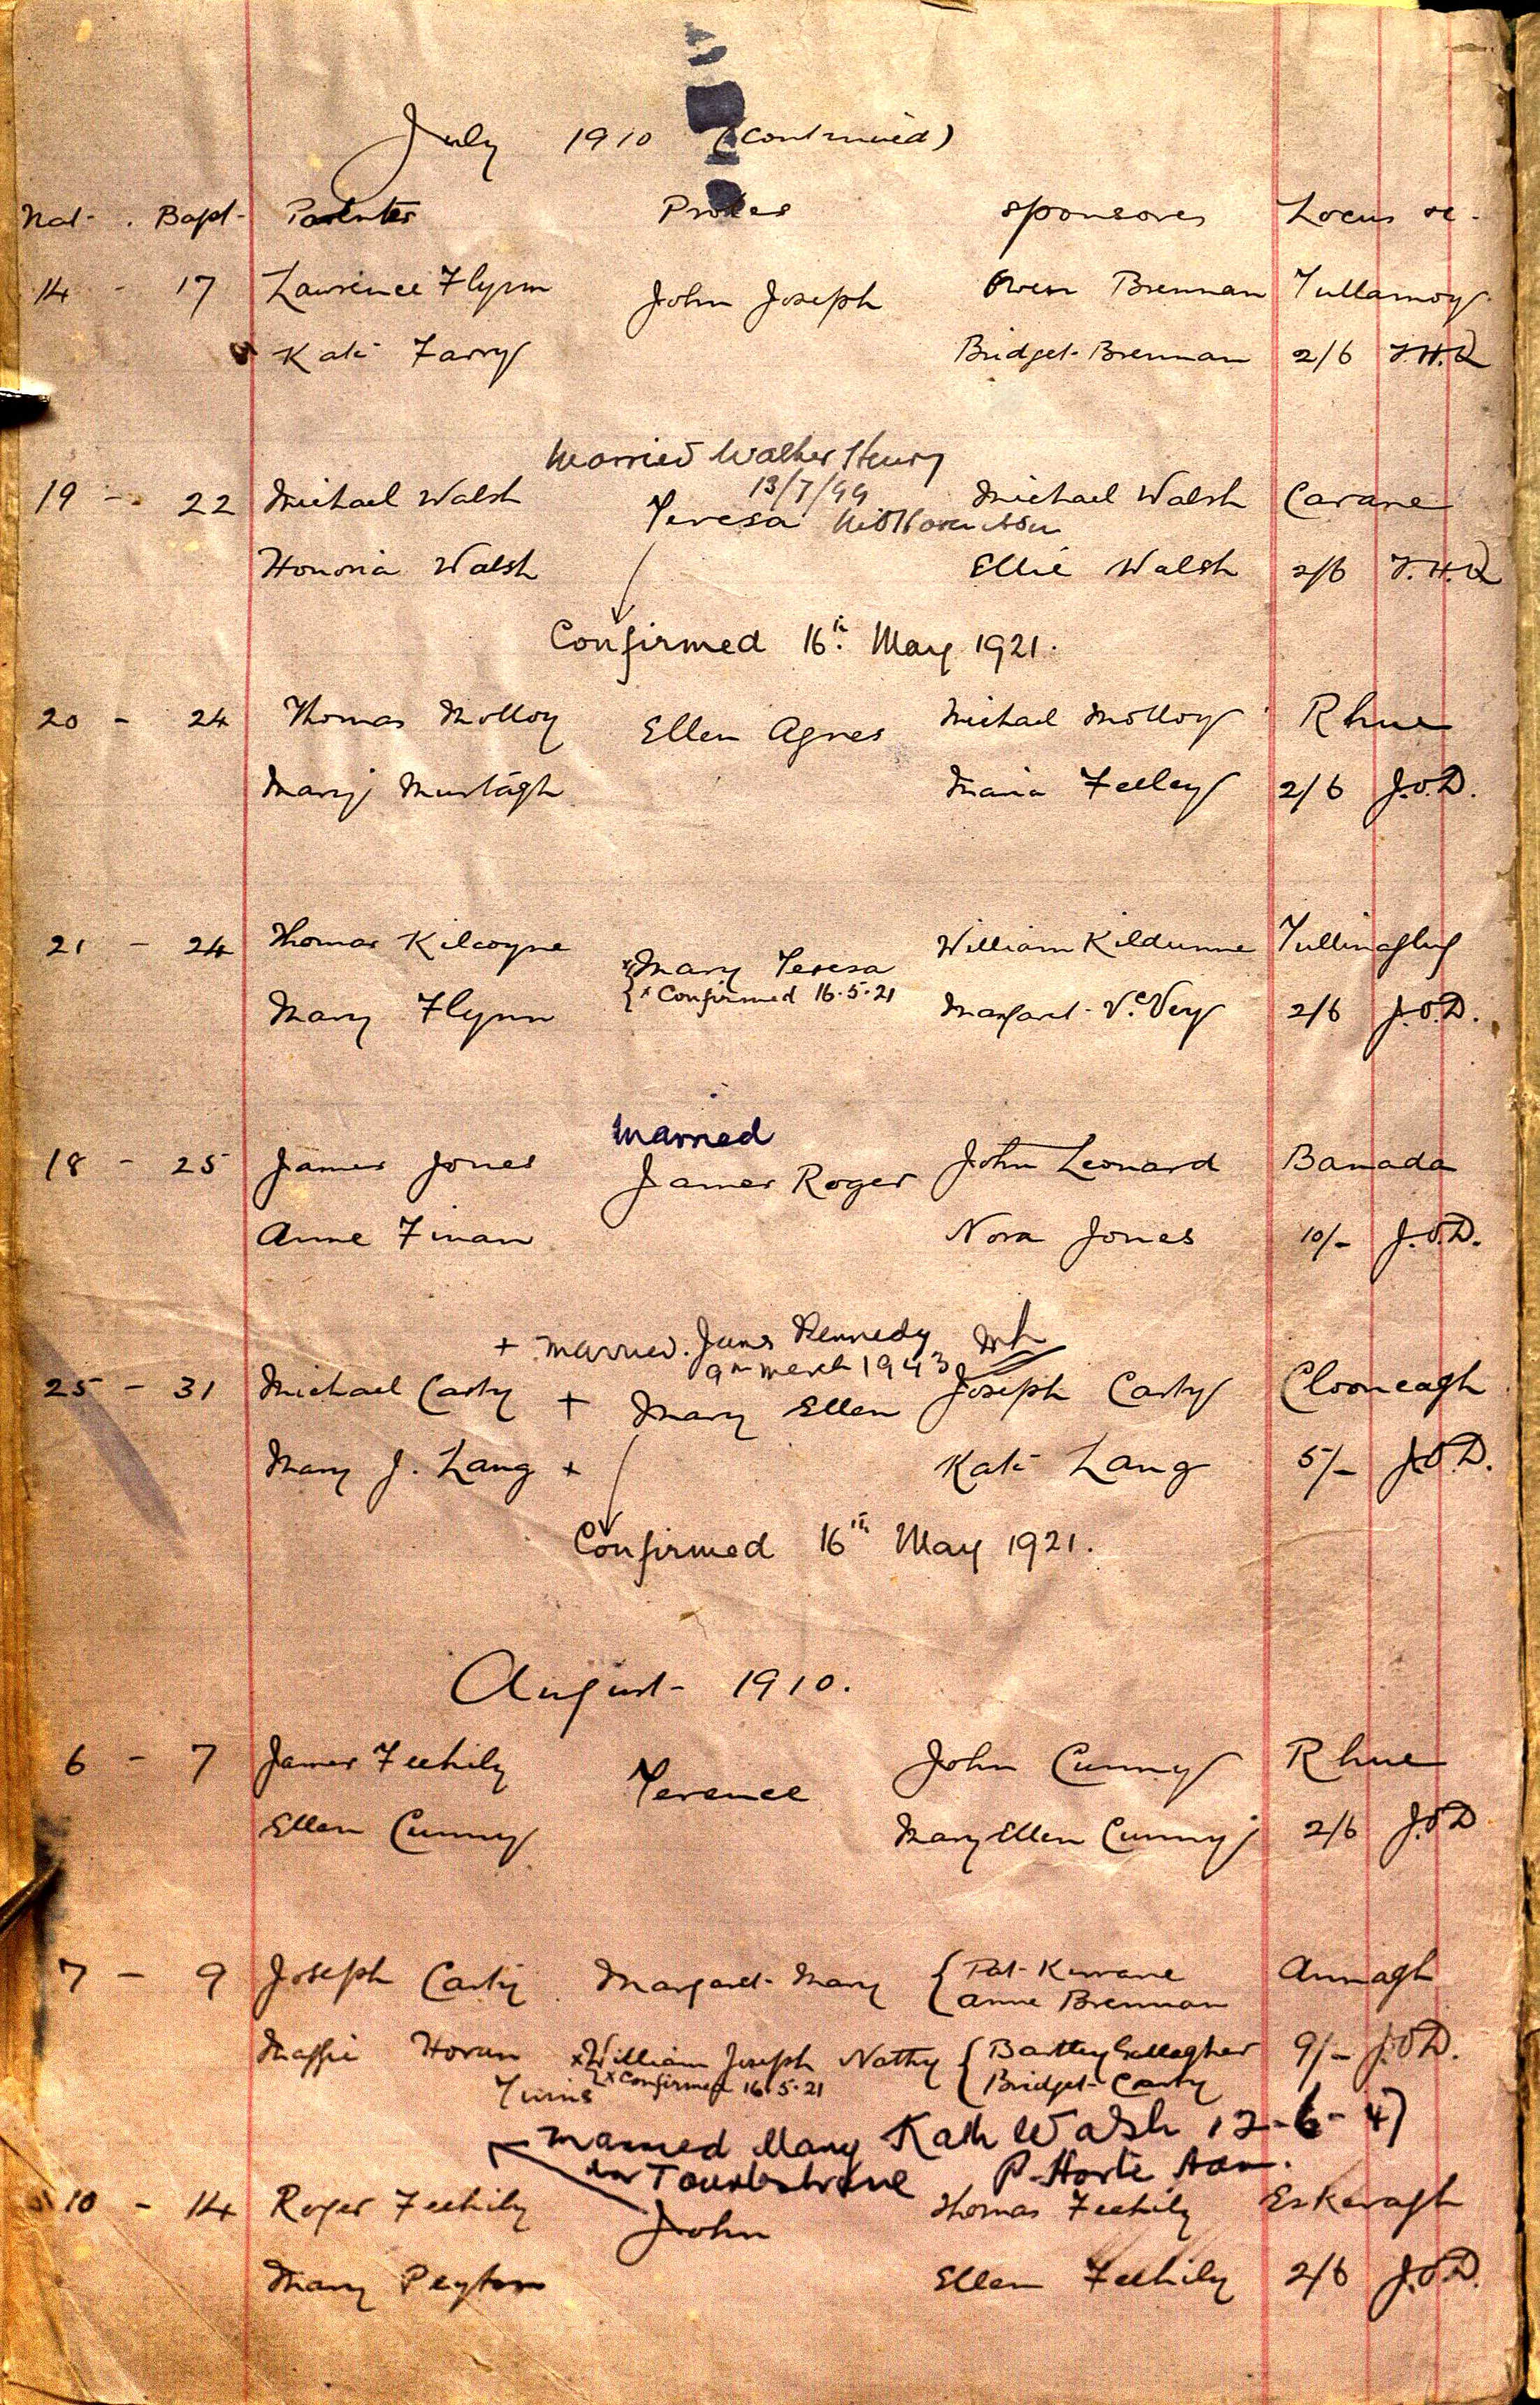 July 1910 (continued)
Nat. Bapt. Parentes Proles Sponsores Locus &c.
14 - 17 Lawrence Flynn John Joseph Owen Brennan Tullamoy
Kate Farry Bridget Brennan 2/6 T.H.Q
Married Walter Henry
13/7/49
19 - 22 Michael Walsh Teresa Michael Walsh Carane
Honoria Walsh Ellie Walsh 2/6 T.H.Q
Confirmed 16th May 1921.
20 - 24 Thomas Molloy Ellen Agnes Michael Molloy Rhue
Mary Murtagh Maria Feeley 2/6 J.O'D.
21 - 24 Thomas Kilcoyne x Mary Teresa William Kildunne Tullinaglug
x Confirmed 16.5.21
Mary Flynn Margaret VcVey 2/6 J.O'D.
Married
18 - 25 James Jones James Roger John Leonard Banada
Anne Finan Nora Jones 10/- J.O'D.
+ married James Kennedy
9th March 1943
25 - 31 Michael Carty + Mary Ellen Joseph Carty Clooneagh
Mary J. Lang + Kate Lang 5/- J.O'D.
Confirmed 16th May 1921.
August 1910.
6 - 7 James Feehily Terence John Cunny Rhue
Ellen Cunny Mary Ellen Cunny 2/6 J.O'D
7 - 9 Joseph Carty Margaret Mary { Pat Kerrane Annagh
Anne Brennan
Maggie Horan x William Joseph Nathy { Bartley Gallagher 9/- J.O'D.
Twins x Confirmed 16.5.21 Bridget Carty
married Mary Kath Walsh 12-6-47
in Tourlestrane P. Horte Adm.
10 - 14 Roger Feehily John Thomas Feehily Eskeragh
Mary Peyton Ellen Feehily 2/6 J.O'D.